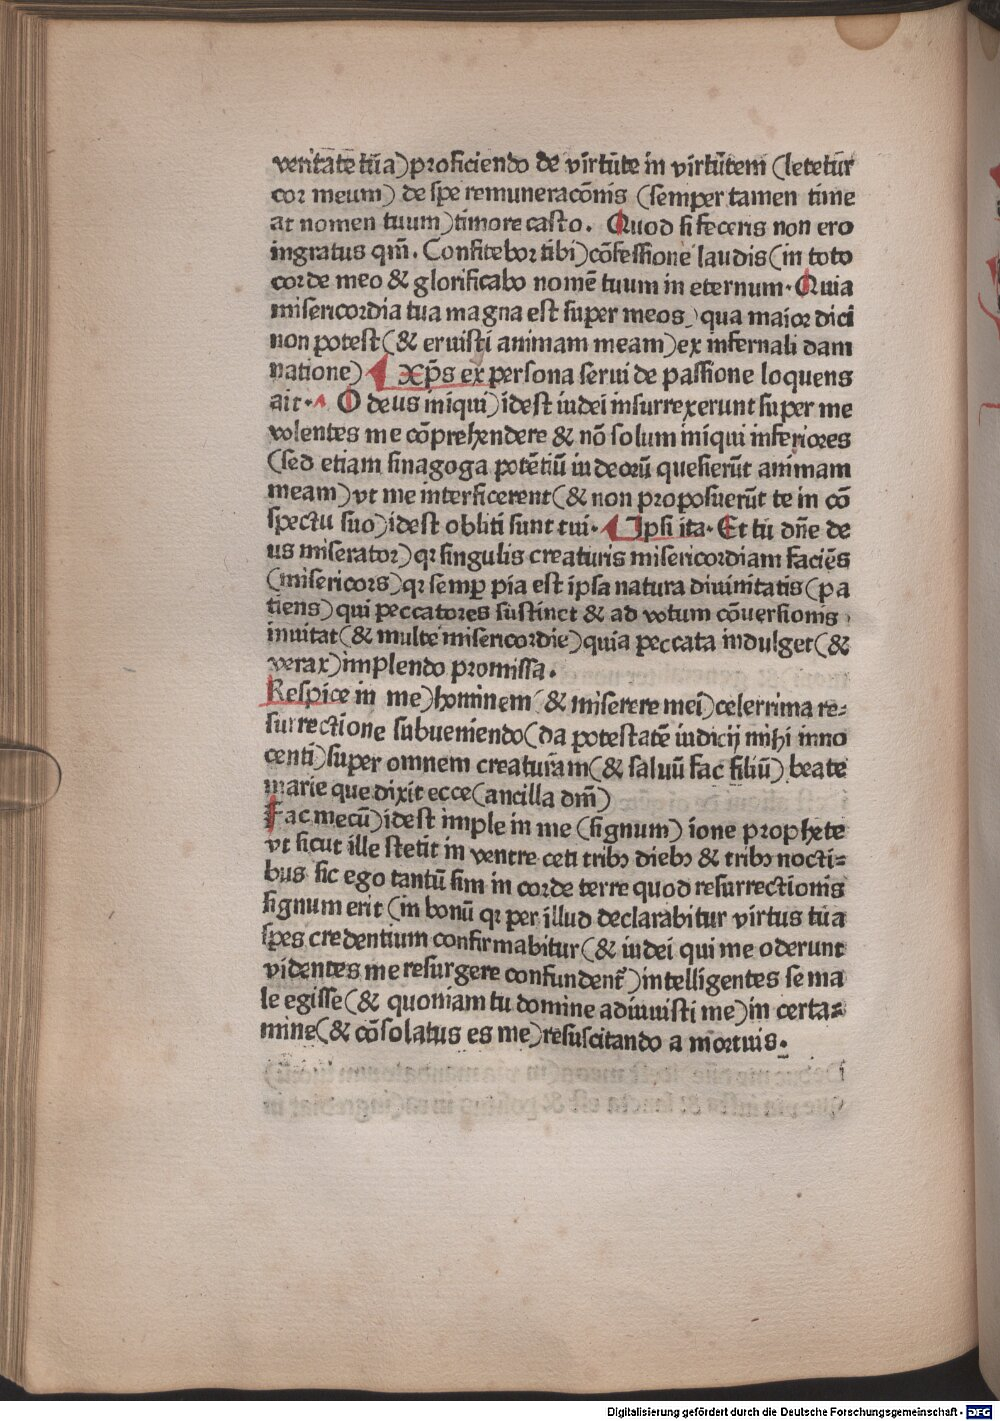 veritate tūa) proficiendo de virtute in virtutem (letetur
cor meum) de spe remuneracōnis (semper tamen time
at nomen tuum) timore casto. Quod si feceris non ero
ingratus qm̄. Confitebor tibi) cōfessione laudis (in toto
corde meo & glorificabo nomē tuum in eternum. Quia
misericordia tua magna est super me os) qua maior dici
non potest (& eruisti animam meam) ex infernali dam
natione) Xp̄s ex persona serui de passione loquens
ait. O deus iniqui) idest iudei insurrexerunt super me
volentes me cōprehendere & nō solum iniqui inferiores
(sed etiam sinagoga potētiū iudeorū quesierūt animam
meam) vt me interficerent (& non proposuerūt te in cō
spectu suo) idest obliti sunt tui. Ipsi ita. Et tu dn̄e de
us miserator) qꝛ singulis creaturis misericordiam faciēs
(misericors) qꝛ semꝑ pia est ipsa natura diuinitatis (pa
tiens) qui peccatores sustinet & ad votum cōuersionis
inuitat (& multe misericordie) quia peccata indulget (&
verax) implendo promissa.
Respice in me) hominem (& miserere mei) celerrima re⸗
surrectione subueniendo (da potestatē iudicij mihi inno
centi) super omnem creaturam (& saluū fac filiū) beate
marie que dixit ecce (ancilla dm̄)
Fac mecū) idest imple in me (signum) ione prophete
vt sicut ille stetit in ventre ceti tribꝫ diebꝫ & tribꝫ nocti⸗
bus sic ego tantū sim in corde terre quod resurrectionis
signum erit (in bonū qꝛ per illud declarabitur virtus tua
spes credentium confirmabitur (& iudei qui me oderunt
videntes me resurgere confundent᷑) intelligentes se ma
le egisse (& quoniam tu domine adiuuisti me) in certa⸗
mine (& cōsolatus es me) resuscitando a mortuis.
Digitalisierung gefördert durch die Deutsche Forschungsgemeinschaft - DFG